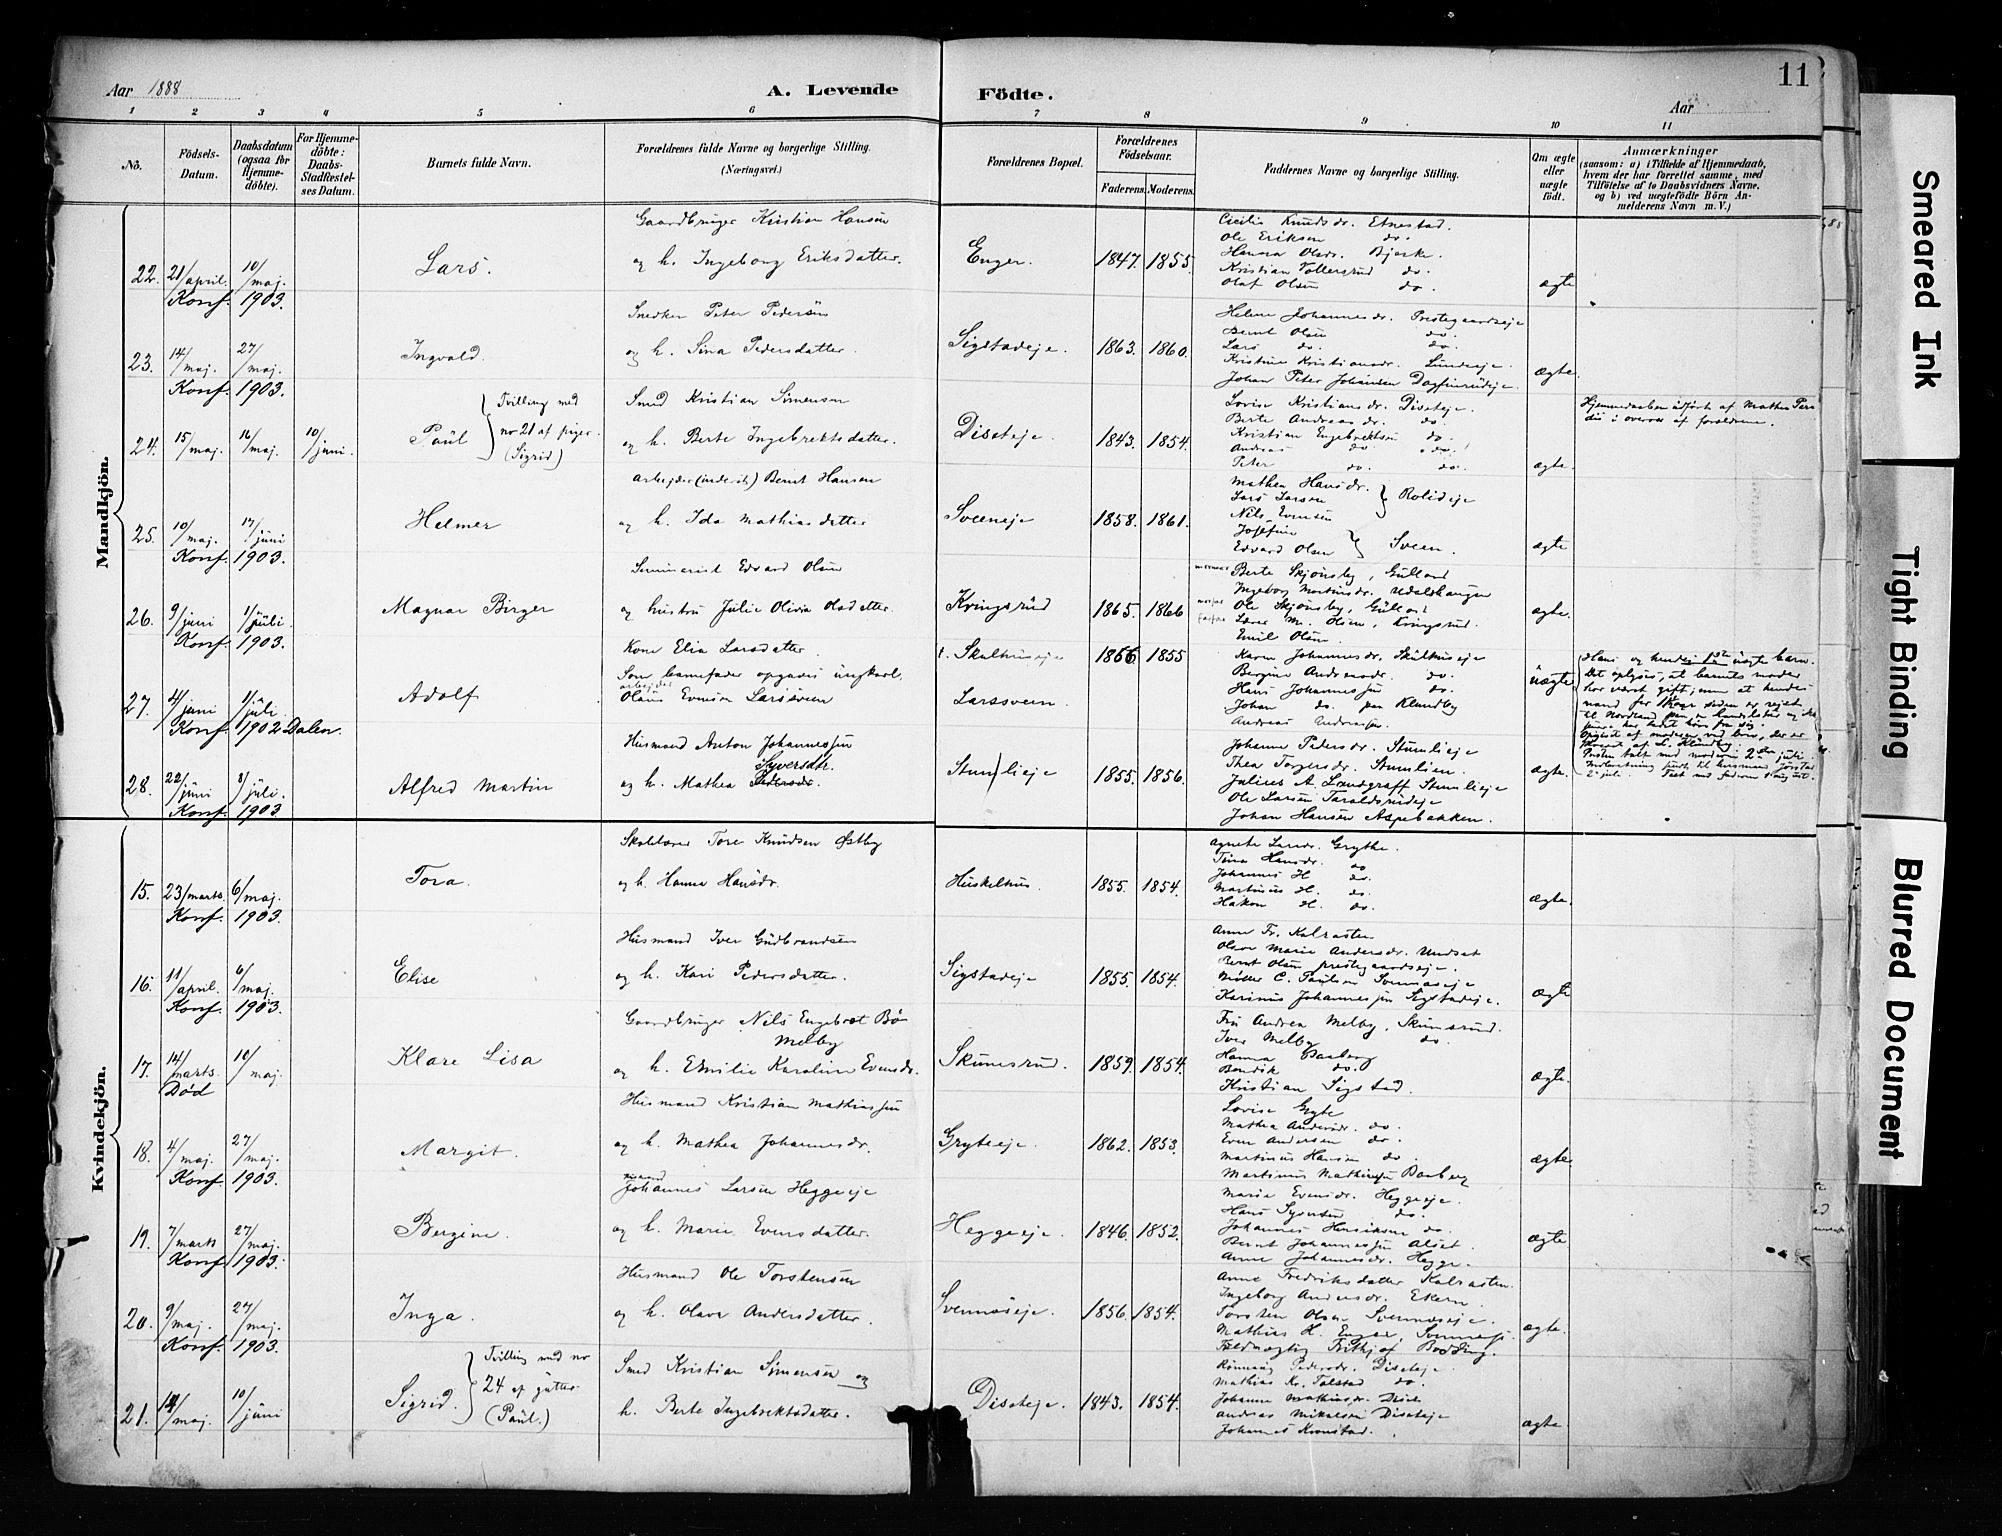 Aar 1888
A. Levende
Födte.
Aar
11
1 2 3 4 5 6 7 8 9 10 11
No.
Födsels-Datum.
Daabsdatum (ogsaa for Hjemmedöbte).
For Hjemmedöbte: Daabs-Stadfestelses Datum.
Barnets fulde Navn.
Forældrenes fulde Navne og borgerlige Stilling. (Næringsvei.)
Forældrenes Bopæl.
Forældrenes Födselsaar.
Faderens. Moderens.
Faddernes Navne og borgerlige Stilling.
Om ægte eller uægte födt.
Anmærkninger
(saasom: a) i Tilfælde af Hjemmedaab, hvem der har forrettet samme, med Tilföielse af to Daabsvidners Navne. og b) ved uægtefödte Börn Anmelderens Navn m. V.)
Mandkjön.
22. 21/april. 10/maj. Lars.
Konf. 1903.
Gaardbruger Kristian Hansen
og h. Ingeborg Eriksdatter.
Enger. 1847. 1855.
Cecilie Knudsdr. Etnestad.
Ole Eriksen do.
Hanna Olsdr. Bjerke.
Kristian Tollersrud do.
Olaf Olsen do.
ægte
23. 14/maj. 27/maj. Ingvald.
Konf. 1903.
Snedker Peter Pedersen
og h. Sina Pedersdatter.
Sigstadeje. 1863. 1860.
Helene Johannesdr. Prestegaardseje
Bernt Olsen do.
Lars do. do.
Kristine Kristiansdr. Lundeeje.
Johan Peter Johansen Dagfinrudeje.
ægte.
24. 15/maj. 16/maj. 10/juni. Paul
Tvilling med
no 21 af piger.
(Sigrid)
Smed Kristian Simensen
og h. Berte Ingebrektsdatter.
Diseteje. 1843. 1854.
Lovise Kristiansdr. Diseteje.
Berte Andreasdr. do.
Kristian Engebrektsen do.
Andreas do do.
Peter do. do.
ægte.
Hjemmedaaben udført af Mathea
i overvær af forældrene.
25. 10/maj. 17/juni Helmer
Konf. 1903.
Arbejder (inderst) Bernt Hansen
og h. Ida Mathiasdatter
Sveeneje. 1858. 1861.
Mathea Hansdr.
Lars Larsen
Nils Evensen
Rolideje
Josefine
Edvard Olsen
Sveen.
ægte
26. 9/juni 1/juli. Magnar Birger
Konf. 1903.
Seminarist Edvard Olsen
og hustru Julie Olivia Olsdatter.
Kringsrud 1865. 1866
mormor Berte Skjønsby, Gullord
Ingeborg Martinusdr. Udaldhaugen
morfar Ole Skjønsby, Gullord
farfar Lærer M. Olsen, Kringsrud.
Emil Olsen
ægte.
27. 4/juni 1/juli. Adolf
Konf. 1902 Dalen.
Kone Elia Larsdatter.
Som barnefader opgaves ungkarl
arbejder
Olaus Evensen Larssveen
Skulhuseje 1866 1855
Larssveen.
Karen Johannesdr. Skulhuseje
Bergine Andersdr. do.
Hans Johannessen do.
Johan do. paa Klundby
Andreas Andreassen
uægte
Hans og hendes 1ste uægte barn.
Det oplyses, at barnets moder
har været gift, men at hendes
mand for
til Nordland
28. 22/juni 8/juli. Alfred Martin
Konf. 1903
Husmand Anton Johannessen
Syversdtr.
og h. Mathea Pedersdr.
Stumlieje 1855. 1856.
Johanne Pedersdr. Stumlieje
Thea Torgersdr. Stumlien.
Julius A. Lundgraff Stumlieje
Ole Larsen Taraldsrudeje
Johan Hansen Aspebakken.
ægte.
Kvindekjön.
15. 23/marts. 6/maj. Tora.
Konf. 1903.
Skolelærer Tore Knudsen Østby
og h. Hanna Hansdr.
Huskelhus. 1855. 1854.
Agnete Larsdr. Grythe.
Tina Hansdr. do
Johannes H do.
Martinus H. do.
Hakon H. do.
ægte.
16. 11/april. 6/maj. Elise
Konf. 1903.
Husmand Iver Gudbrandsen
og h. Kari Pedersdatter.
Sigstadeje 1855. 1854.
Anne Fr. Kalrasten
Olava Marie Andersdr. Undset
Bernt Olsen prestegaardseje.
Møller C. Paulsen Svennæseje
Karinus Johannessen Sigstadeje.
ægte
17. 14/marts. 10/maj. Klare Lisa
Død
Gaardbruger Nils Engebret Bø
Melby
og h. Emilie Karoline Evensdr.
Skumsrud. 1859. 1854.
Fru Andrea Melby, Skumsrud.
Iver Melby do.
Hanna Paaberg
Bendik do.
Kristian Sigstad.
ægte.
18. 4/maj. 27/maj. Margit.
Konf. 1903.
Husmand Kristian Mathiassen
og h. Mathea Johannesdr.
Gryteeje. 1862. 1853.
Lovise Gryte
Mathea Andersdr. do.
Even Andersen do.
Martinus Hansen do.
Martinus Mathiesen Paaberg
ægte
19. 7/marts 27/maj. Bergine.
Konf 1903.
Husmand
Johannes Larsen Heggeeje
og h. Marie Evensdatter.
Heggeeje 1846 1852.
Marie Evensdr. Heggeeje.
Hans Syversen do.
Johannes Henriksen do.
Bernt Johannessen Alset.
Anne Johannesdr. Hegge.
ægte
20. 9/maj. 27/maj. Inga.
Konf. 1903.
Husmand Ole Torstensen
og h. Olava Andersdatter.
Svennæseje. 1856. 1854.
Anne Fredriksdatter Kalrasten.
Ingeborg Andersdr. Ekern.
Torsten Olsen Svennæseje.
Mathias H. Enger, Svennæs.
Fuldmægtig Frithjof Bødding.
ægte.
21. 14/maj. 10/juni Sigrid.
Tvilling med no
24 af gutter
(Paul.)
Smed Kristian Simensen og
h. Berte Ingebrektsdatter.
Diseteje. 1843. 1854.
Rønnaug Pedersdr. Diseteje.
Mathias Kr. Talstad do.
Johanne Mathiasdr. Diset
Andreas Mikalsen Diseteje
Johannes Kronstad.
ægte
Smeared Ink
Tight Binding
Blurred Document